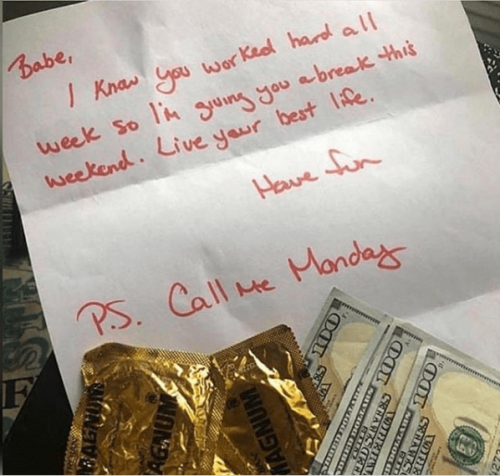 Babe,
I Know you worked hard all
week so I'm giving you a break this
weekend. Live your best life.
Have fun
P.S. Call Me Monday
MAGNUM
MAGNUM
MAGNUM
100
100
100